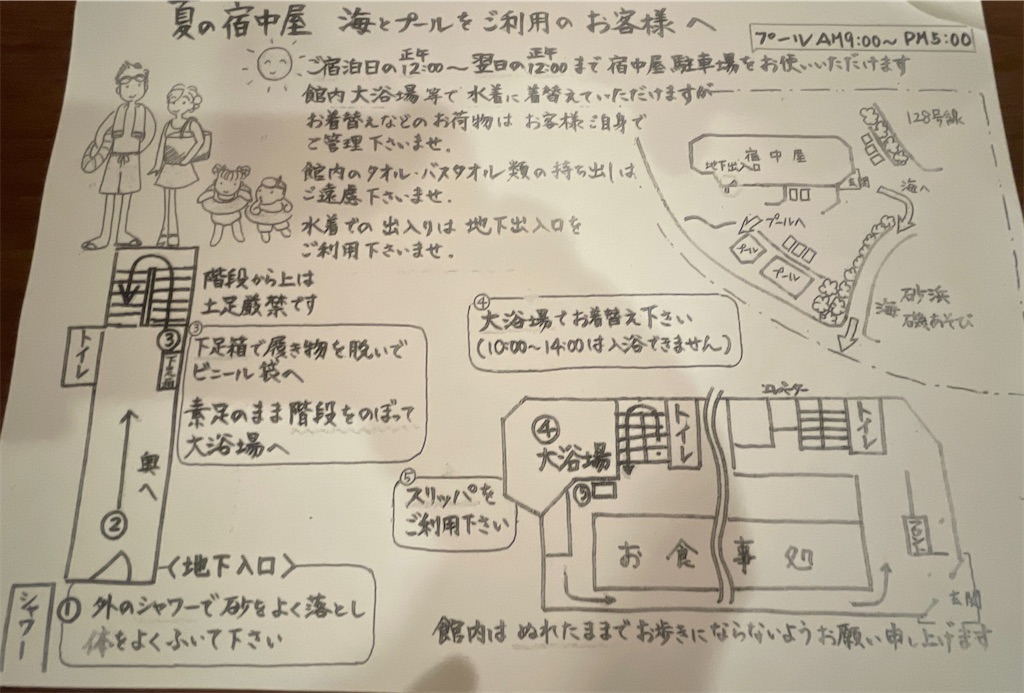 夏の宿中屋 海とプールをご利用のお客様へ
プールAM9:00~PM5:00
ご宿泊日の正午12:00~翌日の正午12:00まで宿中屋駐車場をお使いいただけます
館内大浴場等で水着に着替えていただけますが
お着替えなどのお荷物はお客様ご自身で
ご管理下さいませ.
館内のタオル・バスタオル類の持ち出しは
ご遠慮下さいませ.
水着での出入りは地下出入口を
ご利用下さいませ.
128号線
宿中屋
地下出入口
玄関
海へ
プールへ
プール
プール
海
砂浜
磯あそび
階段から上は
土足厳禁です
トイレ
③
下足箱
③
下足箱で履き物を脱いで
ビニール袋へ
素足のまま階段をのぼって
大浴場へ
奥へ
②
<地下入口>
シャワー
① 外のシャワーで砂をよく落とし
体をよくふいて下さい
④
大浴場でお着替え下さい
(10:00~14:00は入浴できません)
⑤
スリッパを
ご利用下さい
エレベーター
④
大浴場
トイレ
トイレ
⑤
お食事処
フロント
玄関
館内はぬれたままでお歩きにならないようお願い申し上げます